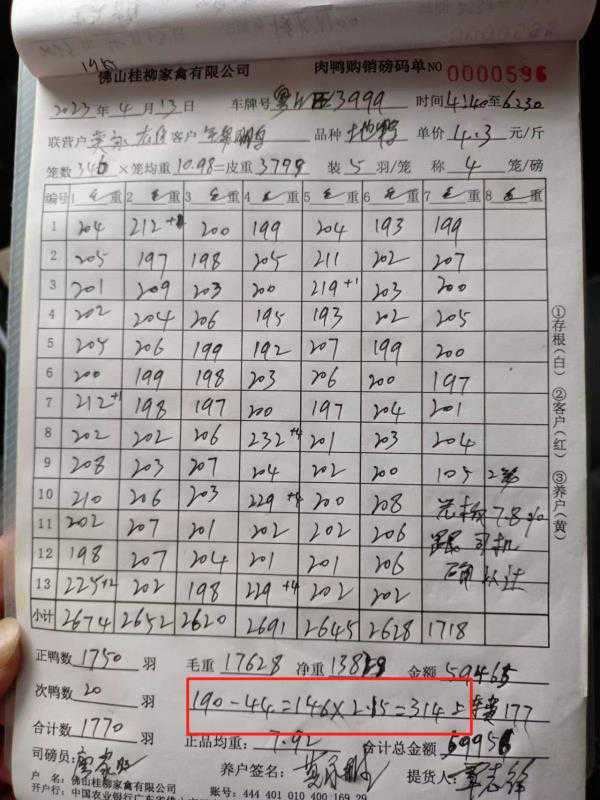 佛山桂柳家禽有限公司 肉鸭购销磅码单 NO 0000596
2023年4月13日 车牌号 3999 时间4:40至6:30
联营户 客户 品种 单价4.3元/斤
笼数346×笼均重10.98=皮重3799 装5羽/笼 称4笼/磅
编号 1毛重 2毛重 3毛重 4毛重 5毛重 6毛重 7毛重 8毛重
1 204 212+1 200 199 204 193 199
2 205 197 198 205 211 202 207
3 201 209 203 200 219+1 203 200
4 202 204 206 195 193 202 205
5 205 206 199 192 207 199 200
6 200 199 198 203 206 200 197
7 212+1 198 197 200 197 204 201
8 202 202 206 232+4 201 203 204
9 208 203 207 204 202 200 105 2笼
10 210 206 203 229+4 200 208
11 202 207 201 202 202 206
12 198 207 204 201 201 206
13 225+2 202 198 229+4 202 202
毛核78%
跟司机
确认过
小计 2674 2652 2620 2691 2645 2628 1718
①存根(白) ②客户(红) ③养户(黄)
正鸭数1750羽 毛重17628 净重138 金额
次鸭数20羽 190-44=146×2.15=314 177
合计数1770羽 正品均重:7.92 合计总金额
司磅员: 养户签名: 提货人:
户 名:佛山桂柳家禽有限公司 账号:444 401 010 400 169 29